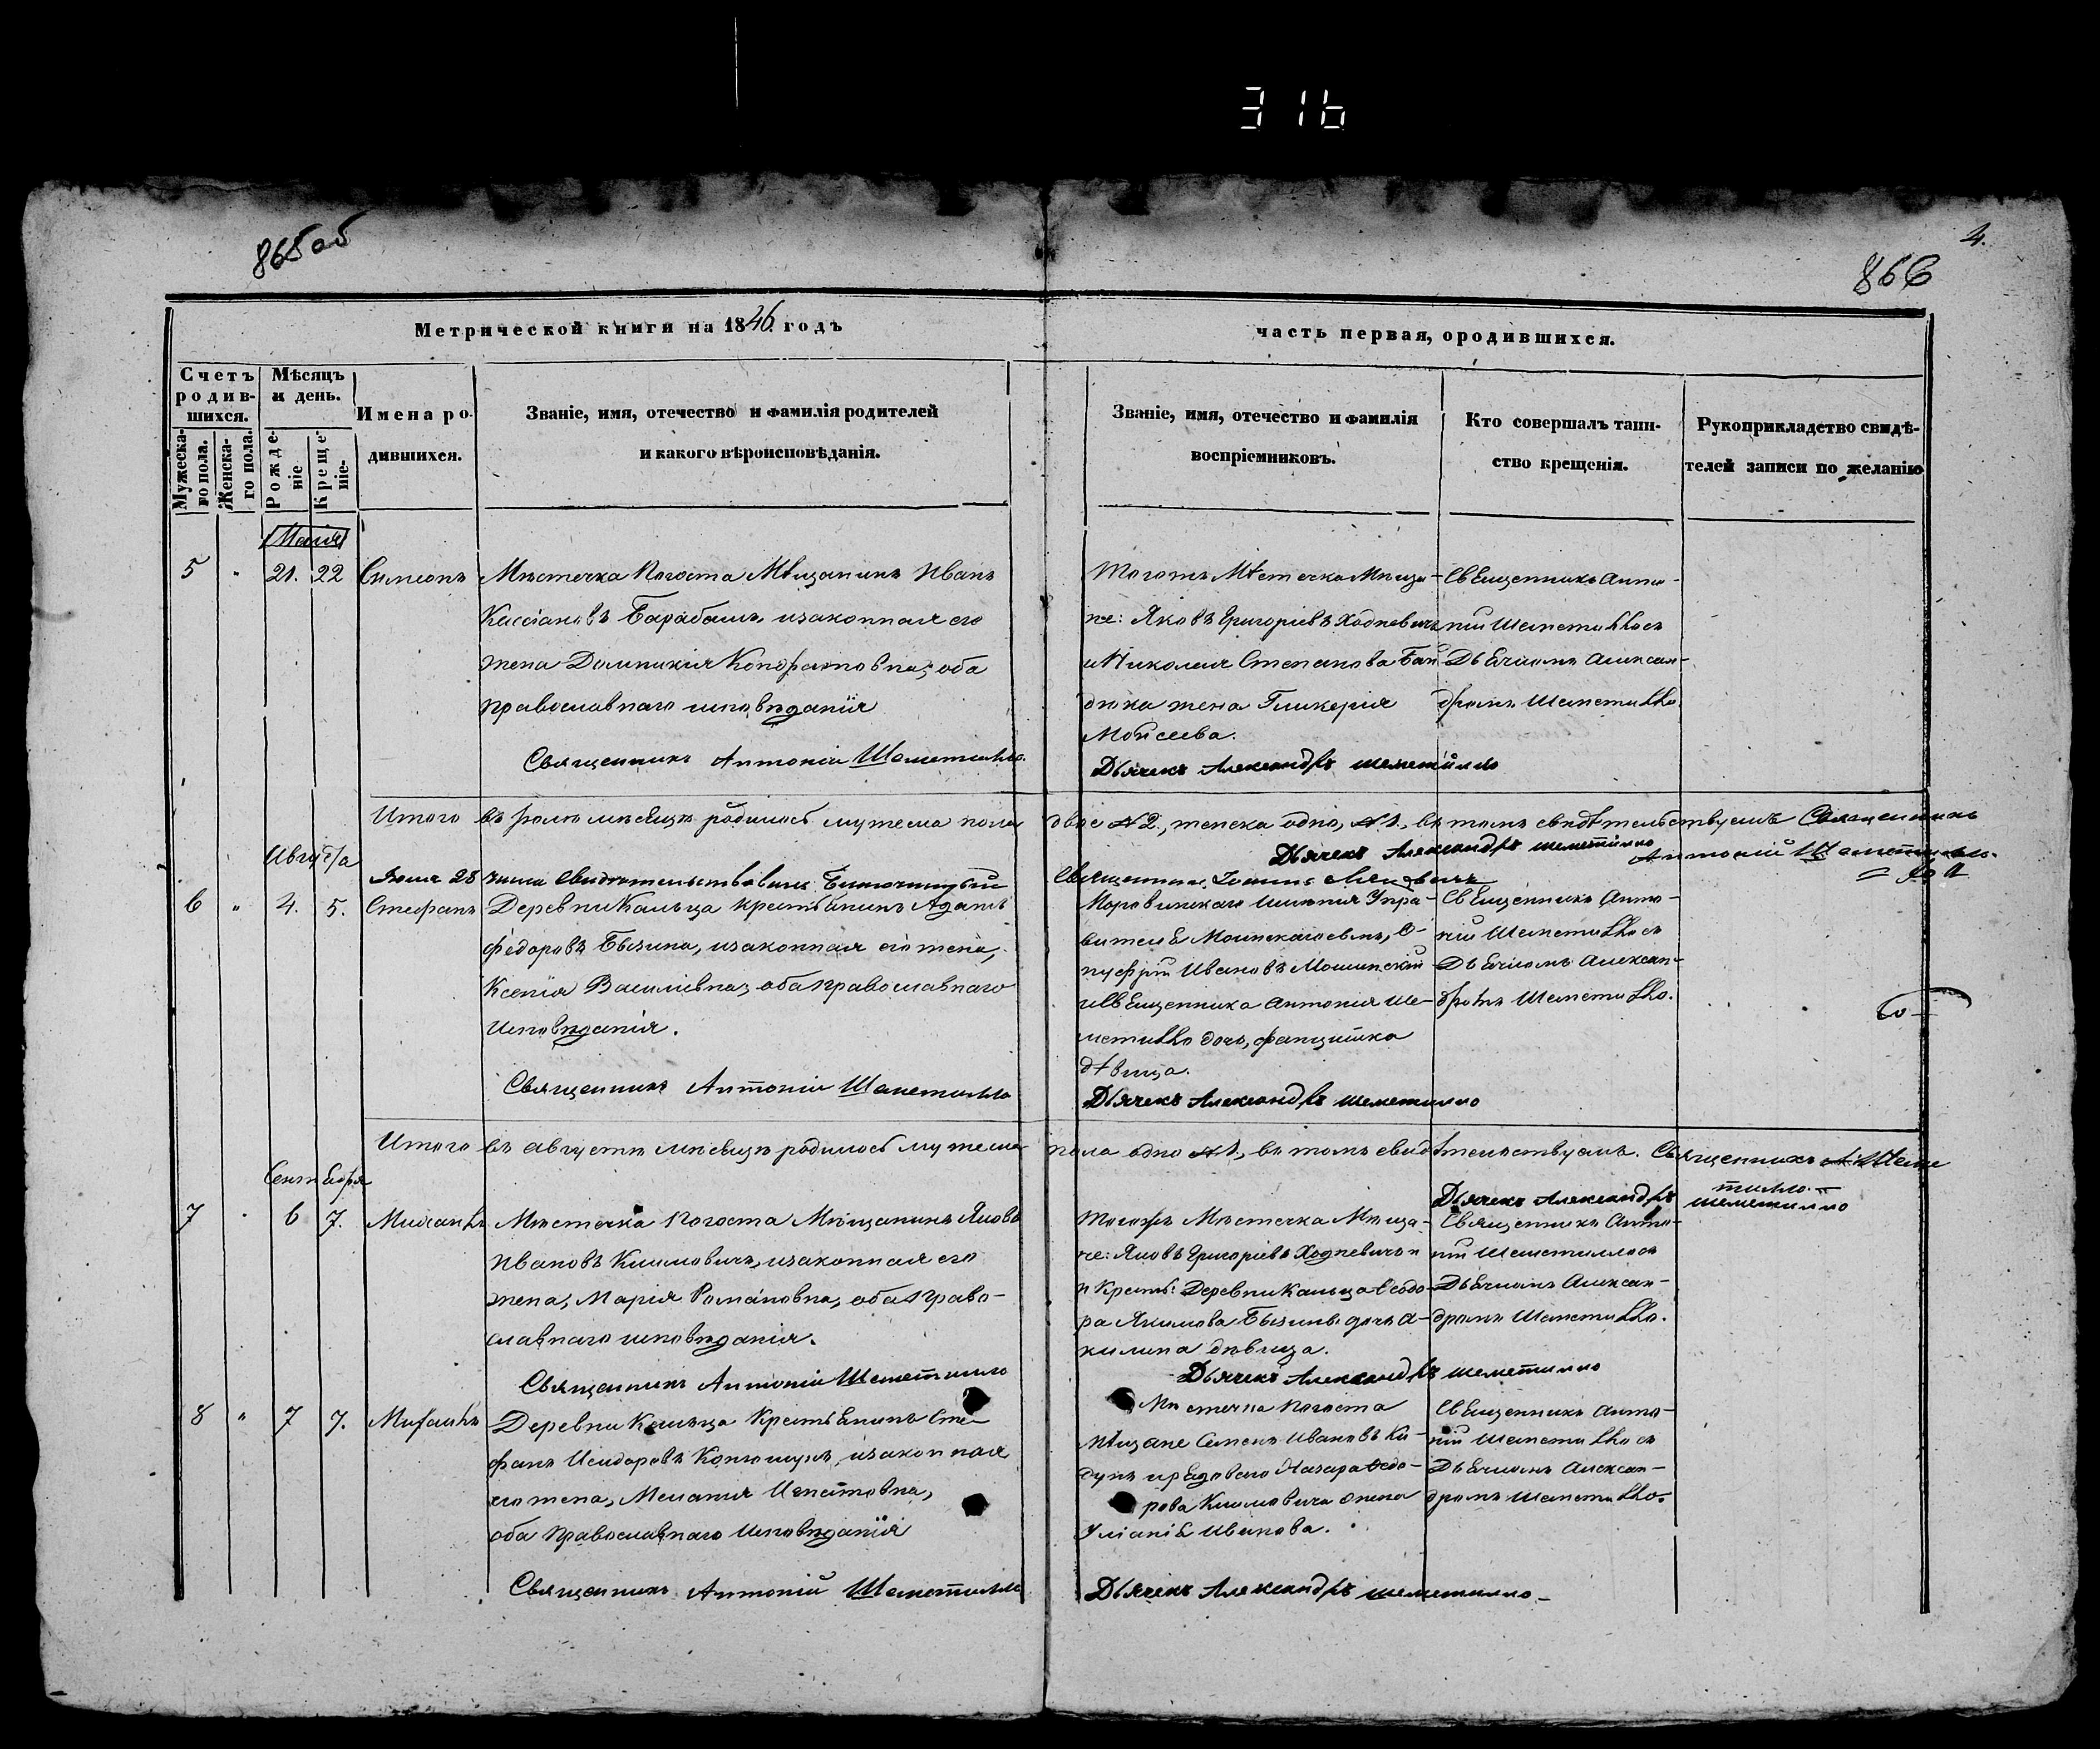 316
865 об
4.
866
Метрической книги на 1846 годъ
часть первая, ородившихся.
Счетъ родив-шихся.
Мѣсяцъ и день.
Мужеска-го пола.
Женска-го пола.
Рожде-ніе
Креще-ніе-
Имена ро-дившихся.
Званіе, имя, отечество и фамилія родителей
и какого вѣроисповѣданія.
Званіе, имя, отечество и фамилія
воспріемниковъ.
Кто совершалъ таин-
ство крещенія.
Рукоприкладство свидѣ-
телей записи по желанію
5 " 21. 22 Симеонъ
Мѣстечка Погоста Мѣщанинъ Иванъ
Кассіановъ Барабашъ, изаконная его
жена Домникія Кондратовна, оба
православнаго исповѣданія
Священникъ Антоній Шеметилло.
Тогожъ Мѣстечка Мѣща-
не: Яковъ Григоріевъ Ходневичъ
и Николая Степанова Бан
дюка жена Гликерія
Моисеева.
Священникъ Анто-
ній Шеметилло съ
Дьячкомъ Алексан-
дромъ Шеметилло.
Дьячекъ Александръ Шеметилло
Итого въ мѣсяцѣ родилось мужеска пола
двое №2, женска одно, №1, въ томъ свидѣтельствуемъ Священникъ
Антоній Шеметилло.
Дьячекъ Александръ Шеметилло
Августа
28 числа свидѣтельствовалъ Благочинный
Священникъ Іоаннъ
6 " 4. 5. Стефанъ
Деревни Кальца крестьянинъ Адамъ
Федоровъ Бызина, изаконная его жена,
Ксенія Василіевна, оба православнаго
Исповѣданія.
Священникъ Антоній Шеметилло
имѣнія Упра-
витель
нуфрій Ивановъ Мошинскій
и Священника Антонія Ше-
метилло дочь, Францишка
дѣвица.
Священникъ Анто-
ній Шеметилло съ
Дьячкомъ Алексан-
дромъ Шеметилло.
Дьячекъ Александръ Шеметилло
Итого въ августѣ мѣсяцѣ родилось мужеска
пола одно №1, въ томъ свидѣтельствуемъ. Священникъ А. Шеме
тилло.
Дьячекъ Александръ Шеметилло
Сентября
7 " 6 7. Михаилъ
Мѣстечка Погоста Мѣщанинъ Яковъ
Ивановъ Климовичъ, изаконная его
жена, Марія Романовна, оба право-
славнаго исповѣданія.
Священникъ Антоній Шеметилло
Тогожъ Мѣстечка Мѣща-
не: Яковъ Григоріевъ Ходневичъ
и Крестья: Деревни Кальца Ѳеодо-
ра Якимова Бызины дочь А-
килина дѣвица.
Священникъ Анто-
ній Шеметилло съ
Дьячкомъ Алексан-
дромъ Шеметилло.
Дьячекъ Александръ Шеметилло
8 " 7 7. Михаилъ
Деревни Кальца Крестьянинъ Сте-
фанъ Исидоровъ изаконная
его жена, Меланія Игнатовна,
оба православнаго Исповѣданія
Священникъ Антоній Шеметилло
Мѣстечка Погоста
Мѣщане Семенъ Ивановъ Ки-
дунъ и рядоваго Назара Ѳедо-
рова Климовича жена
Уліанія Иванова.
Священникъ Анто-
ній Шеметилло съ
Дьячкомъ Алексан-
дромъ Шеметилло.
Дьячекъ Александръ Шеметилло